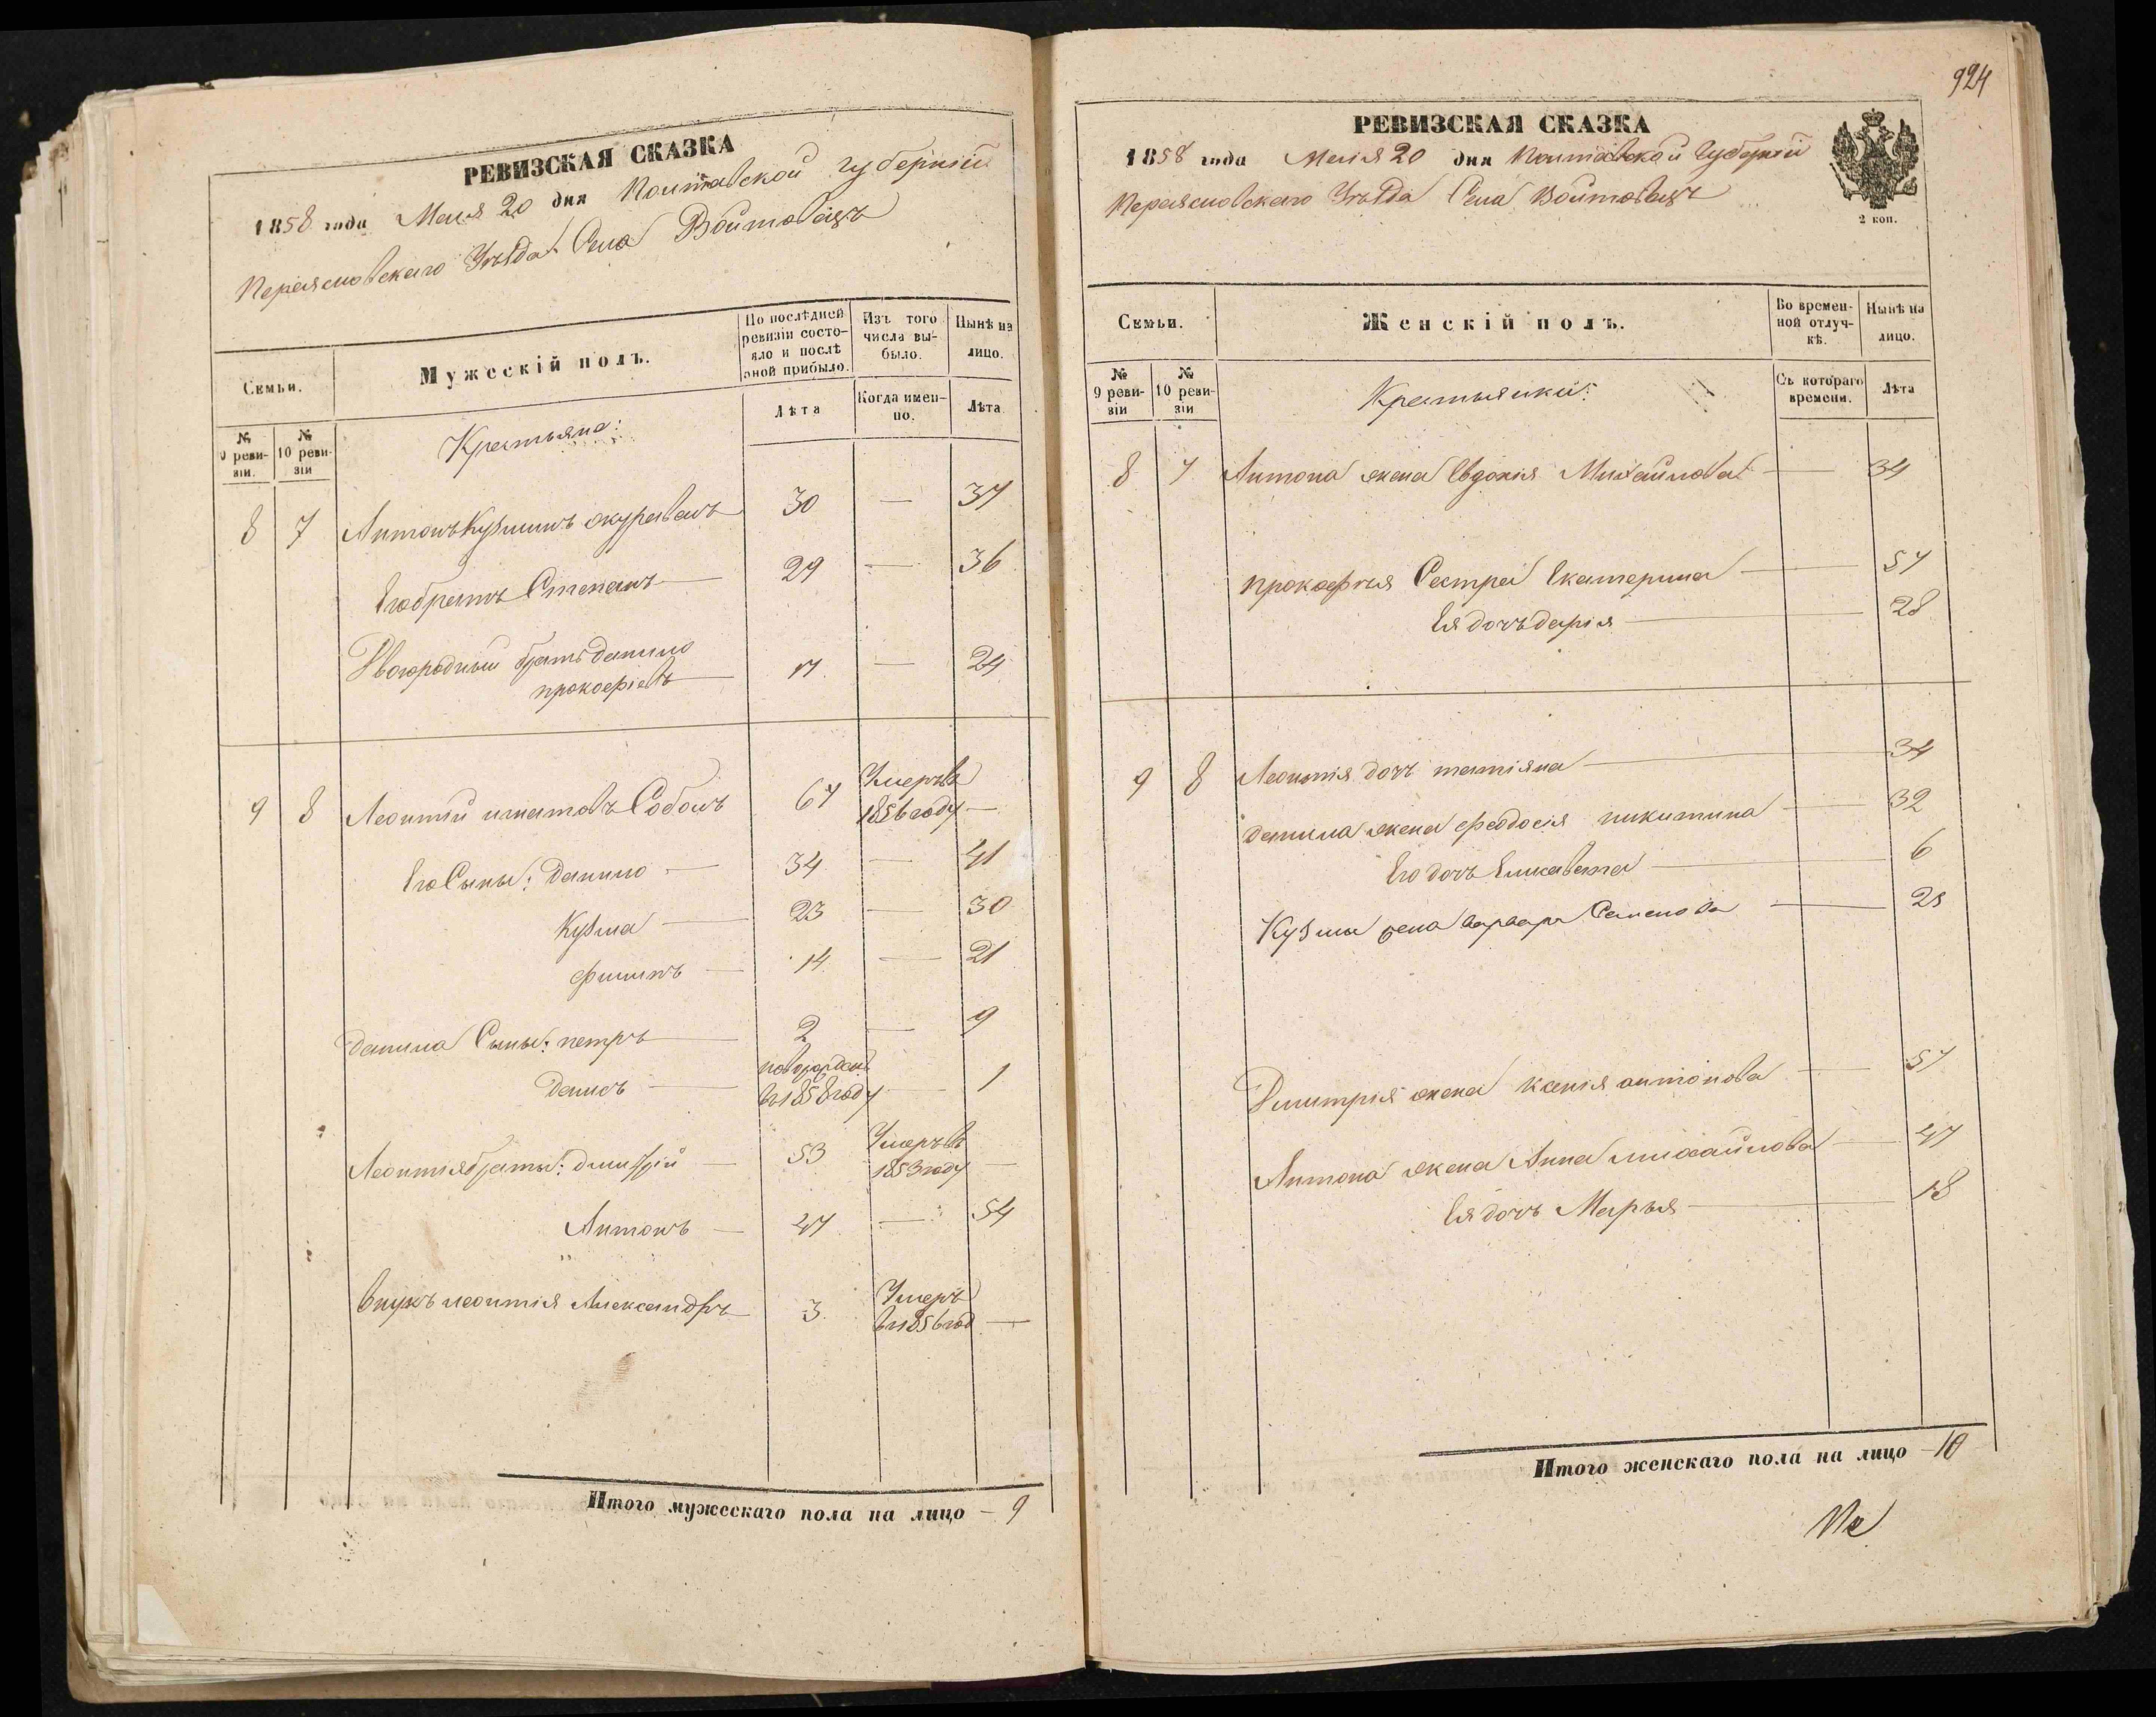 РЕВИЗСКАЯ СКАЗКА
1858 года Маія 20 дня Полтавской губерніи
Переясловскаго Уѣзда Села Войтовецъ
Семьи.
Мужескій полъ.
По послѣдней ревизіи состояло и послѣ оной прибыло.
Изъ того числа выбыло.
Нынѣ на лицо.
№ 9 ревизіи.
№ 10 ревизіи
Крестьяне:
Лѣта
Когда именно.
Лѣта
8 7 Антонъ Кузминъ Журавель 30 — 37
Его братъ Степанъ — 29 — 36
Двоюродный братъ Данило
прокофіевъ — 17 — 24
9 8 Леонтій игнатовъ Соболь 67 Умеръ въ
1856 году —
Его Сыны: Данило — 34 — 41
Кузма — 23 — 30
филипъ — 14 — 21
Данила Сыны: петръ — 2 — 9
Денисъ — новорожден
въ 1858 году — 1
Леонтія браты: дмитрій — 53 Умеръ въ
1853 году —
Антонъ — 47 — 54
внукъ леонтія Александръ 3 Умеръ
въ 1856 год —
Итого мужескаго пола на лицо — 9
924
РЕВИЗСКАЯ СКАЗКА
1858 года Маія 20 дня Полтавской Губерніи
Переясловскаго Уѣзда Села Войтовецъ
2 коп.
Семьи.
Женскій полъ.
Во временной отлучкѣ.
Нынѣ на лицо.
№ 9 ревизіи
№ 10 ревизіи
Крестьянки:
Съ котораго времени.
Лѣта
8 7 Антона жена Евдокія Михайлова — 34
прокофія Сестра Екатерина — 57
Ея дочь дарія — 28
9 8 Леонтія дочь татіяна — 34
данила жена феодосія никитина — 32
Его дочь Елисавета — 6
Кузмы жена варвара Семенова — 25
Дмитрія жена ксенія антонова — 57
Антона жена Анна михайлова — 47
Ея дочь Марья — 18
Итого женскаго пола на лицо — 10